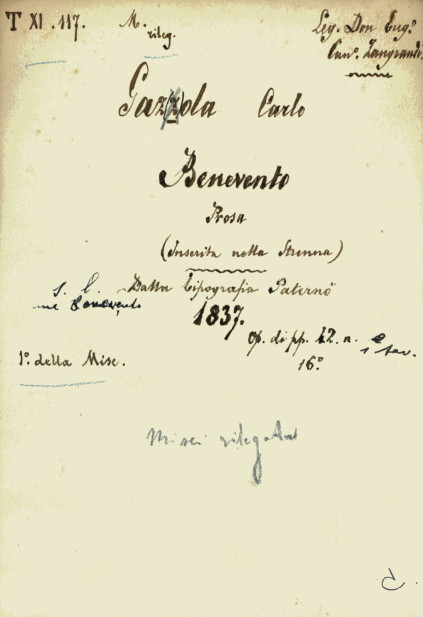 T XI. 117.
M.
rileg.
Leg. Don Eug.º
Can.º Zangrandi.
omise
Gazzola Carlo
Benevento
Prosa
(Inserita nella Strenna)
S. l. Dalla Tipografia Paternò
ma Benevento
1837.
Op. di pp. 42. n. e
1 tav.
1.º della Misc. 16.º
Misc. rilegata
C.